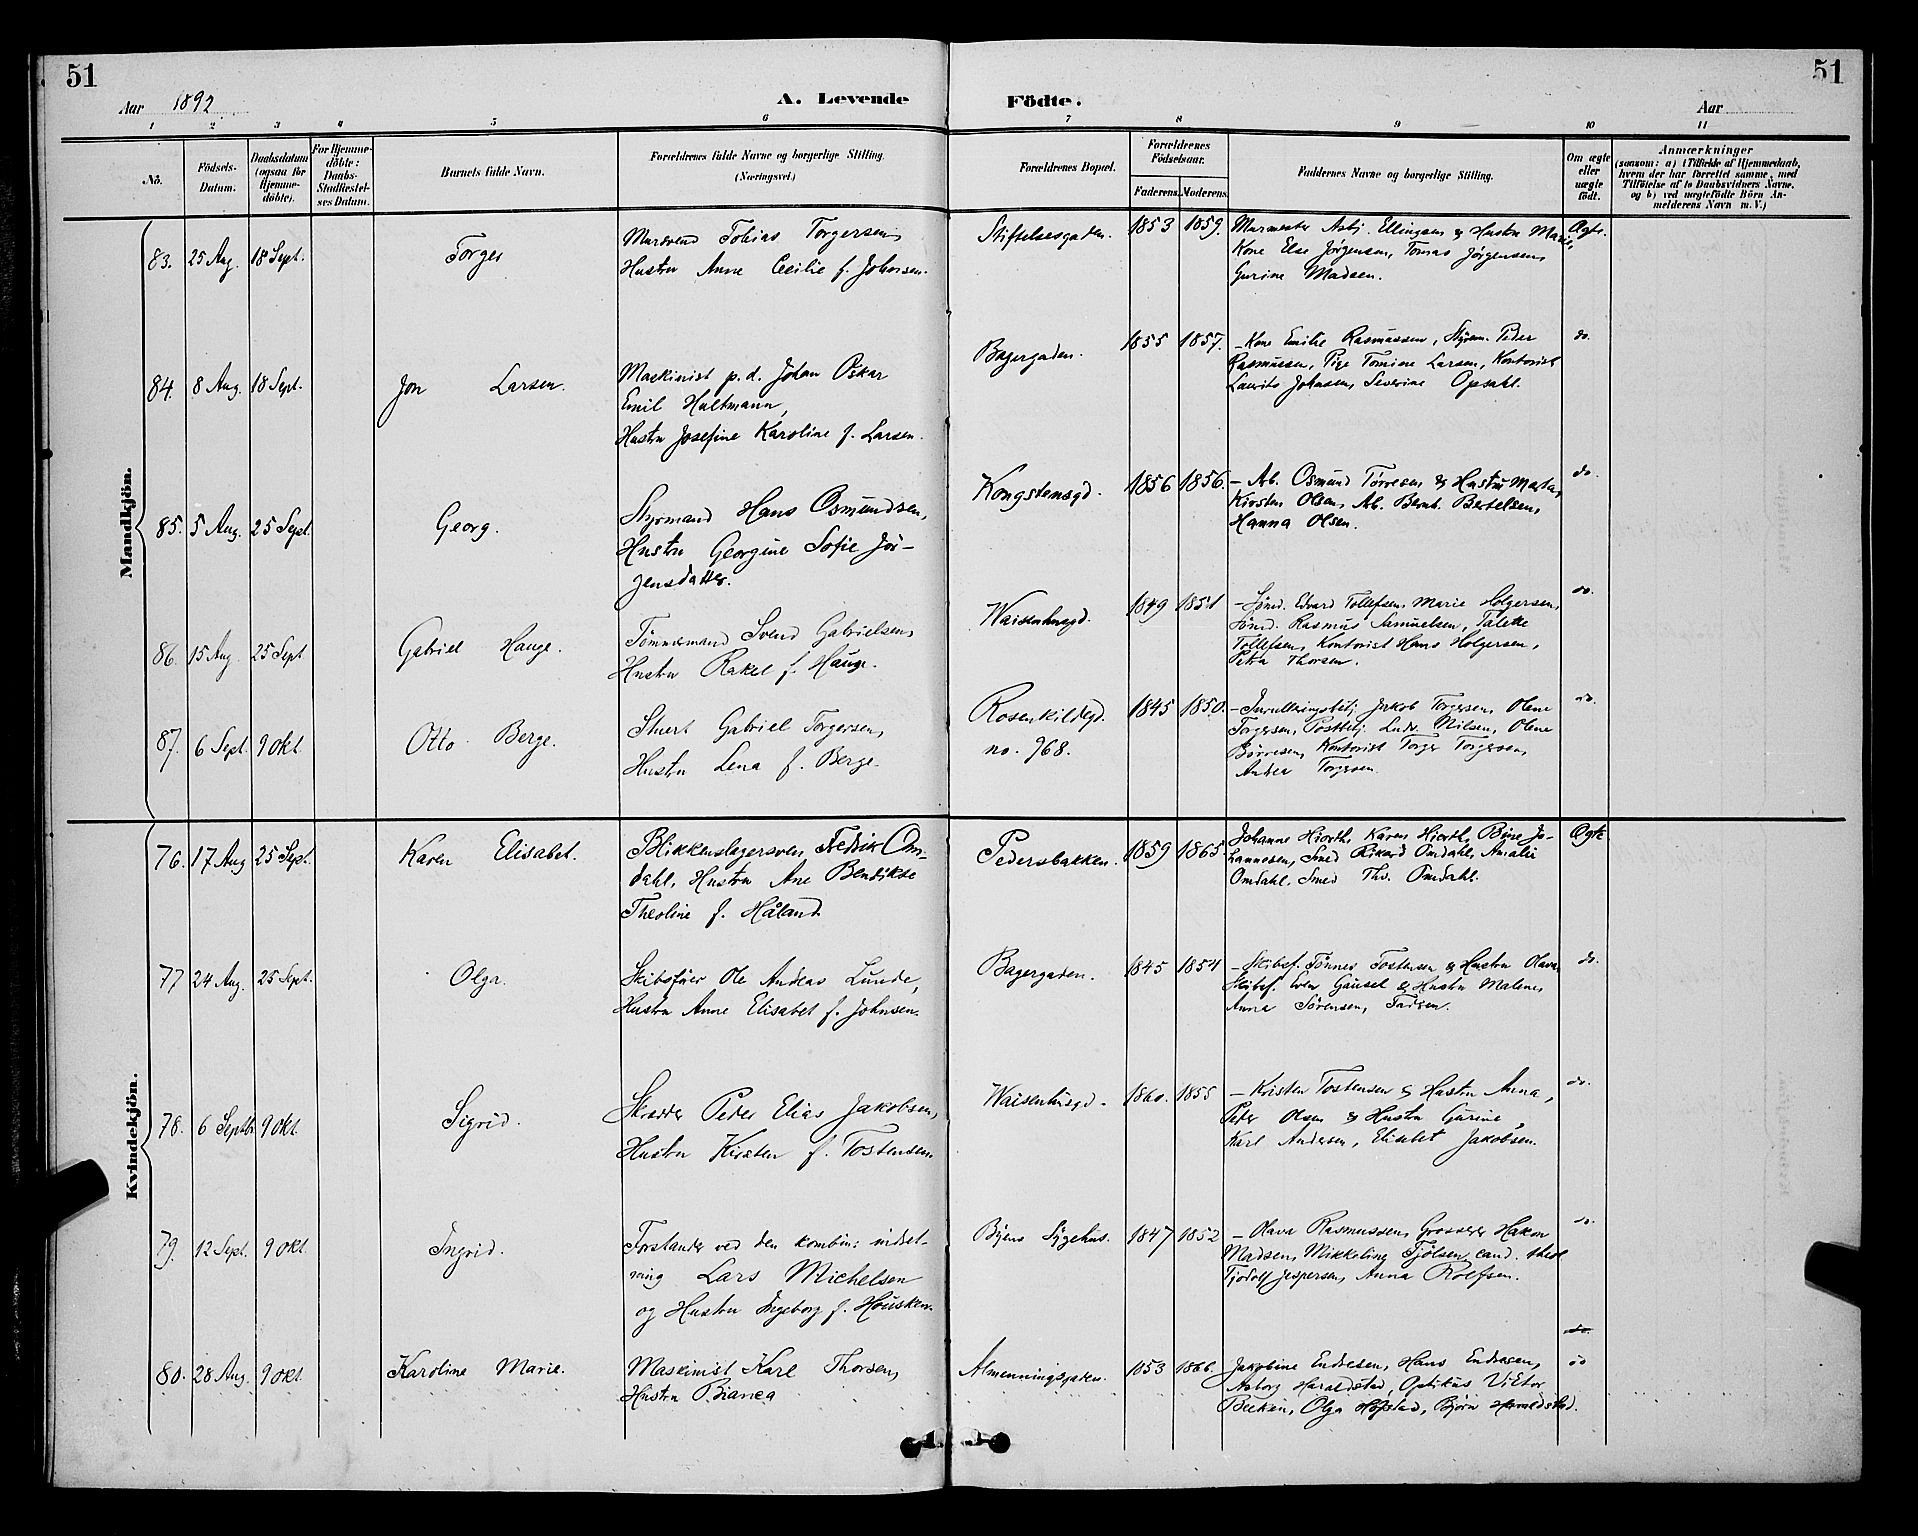 51
51
Aar 1892
A. Levende
Födte.
Aar
1 2 3 4 5 6 7 8 9 10 11
No.
Födsels-
Datum.
Daabsdatum
(ogsaa for
Hjemme-
döbte).
For Hjemme-
döbte:
Daabs-
Stadfæstel-
ses Datum.
Barnets fulde Navn.
Forældrenes fulde Navne og borgerlige Stilling.
(Næringsvei.)
Forældrenes Bopæl.
Forældrenes
Födselsaar.
Faderens.
Moderens.
Faddernes Navne og borgerlige Stilling.
Om ægte
eller
uægte
födt.
Anmærkninger
(saasom: a) i Tilfælde af Hjemmedaab,
hvem der har forrettet samme, med
Tilföielse af to Daabsvidners Navne,
og b) ved uægtefödte Börn An-
melderens Navn m. V.)
Mandkjön.
83. 25 Aug. 18 Sept. Torger
Mursvend Tobias Torgersen,
Hustru Anne Cecilie f. Johnsen.
Stiftelsesgaden. 1853 1859.
Murmester Asbj. Ellingsen & Hustru Marie,
Kone Else Jørgensen, Tomas Jørgensen,
Gurine Madsen.
Ægte.
84. 8 Aug. 18 Sept. Jon Larsen.
Maskinist p.d. Johan Oskar
Emil Hultmann,
Hustru Josefine Karoline f. Larsen.
Bagergaden. 1855 1857.
- Kone Emilie Rasmussen, Styrm. Peder
Rasmussen, Pige Tomine Larsen, Kontorist
Laurits Johnsen, Severine Opsahl.
do.
85. 5 Aug. 25 Sept. Georg.
Styrmand Hans Osmundsen,
Hustru Georgine Sofie Jør-
gensdatter.
Kongstensgd. 1856 1856.
- Arb. Osmund Tørresen & Hustru Marta,
Kirsten Olsen, Arb. Bernh. Bertelsen,
Hanna Olsen.
do.
86. 15 Aug. 25 Sept Gabriel Hauge.
Tømmermand Svend Gabrielsen,
Hustru Rakel f. Hauge.
Waisenhusgd. 1849 1851
- Sømd. Edvard Tollefsen, Marie Holgersen,
Sømd. Rasmus Samuelsen, Talette
Tollefsen, Kontorist Hans Holgersen,
Petra Thorsen.
do.
87. 6 Sept. 9 Okt. Otto Berge.
Stuert Gabriel Torgersen,
Hustru Lena f. Berge.
Rosenkildegd.
no. 968.
1845 1850.
- Inrulleringsbetj. Jakob Torgersen, Olene
Torgersen, Postbetj. Ludv. Nilsen, Olene
Børresen, Kontorist Torger Torgersen,
Andrea Torgersen.
do.
Kvindekjön.
76. 17 Aug 25 Sept. Karen Elisabet.
Blikkenslagersven Fredrik Om-
dahl, Hustru Ane Bendikte
Theoline f. Håland
Pedersbakken. 1859 1865.
Johanne Hiorth, Karen Hiorth, Bine Jo-
hannesen, Smed Rikard Omdahl, Amalie
Omdahl, Smed Thv. Omdahl.
Ægte
77 24 Aug. 25 Sept. Olga.
Skibsfører Ole Andreas Lunde,
Hustru Anne Elisabet f. Johnsen.
Bagergaden. 1845 1854
- Skibsf. Tønnes Tostensen & Hustru Olava,
Skibsf. Sven Gausel & Hustru Malene,
Anna Sørensen, Fadsen.
do.
78. 6 Septbr 9 Okt. Sigrid.
Skrædder Peder Elias Jakobsen,
Hustru Kirsten f. Tostensen.
Waisenhusgd. 1860. 1855
- Kristen Tostensen & Hustru Anna,
Peder Olsen & Hustru Gurine,
Karl Andersen, Elisabet Jakobsen.
do.
79. 12 Sept. 9 Okt. Ingrid.
Forstander ved den kombin: indret-
ning Lars Michelsen
og Hustru Ingeborg f. Housken.
Byens Sygehus. 1847 1852
- Olava Rasmussen, Grosserer Hakon
Madsen, Mikkeline Tjølsen, cand. theol
Tjodolf Jespersen, Anna Rolfsen.
do.
do.
80. 28 Aug. 9 Okt. Karoline Marie.
Maskinist Karl Thorsen,
Hustru Bianca
Almenningsgaden. 1853 1866.
Jakobine Endresen, Hans Endresen,
Asborg Haraldstad, Optikus Viktor
Beeken, Olga Hofstad, Bjørn Haraldstad.
do